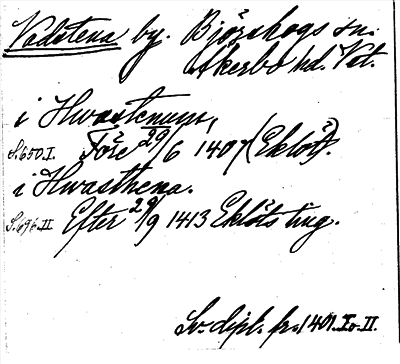 Vadstena by. Björskogs sn.
Åkerbo hd. Vstl.
i Hwastenum,
S.650.I. Före 29/6 1407 (Eklöst).
i Hwasthena.
S.696.II Efter 29/9 1413 Eklöts ting.
Sv. dipl. fr. 1401. I o. II.